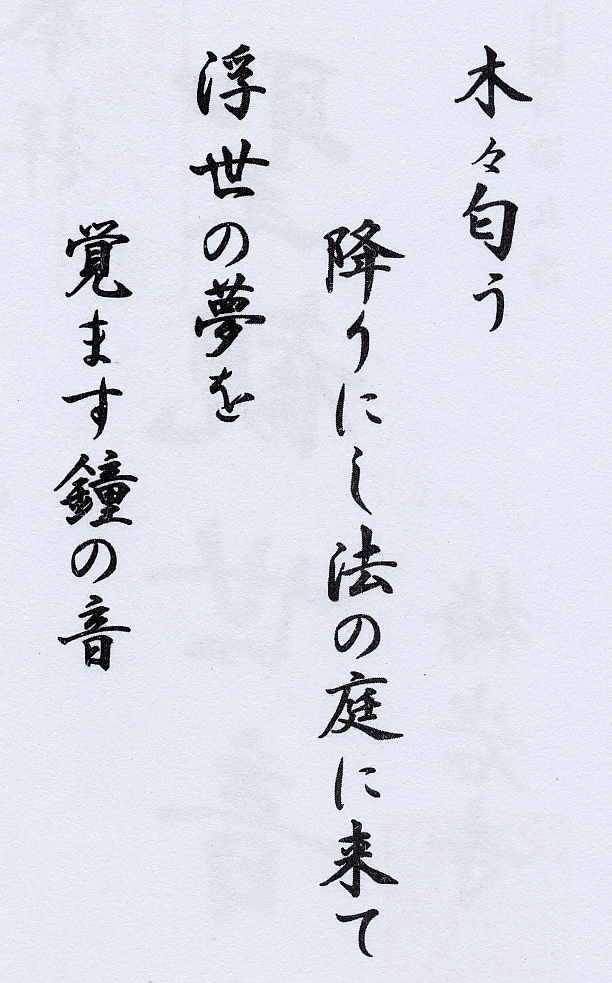 木々匂う
降りにし法の庭に来て
浮世の夢を
覚ます鐘の音